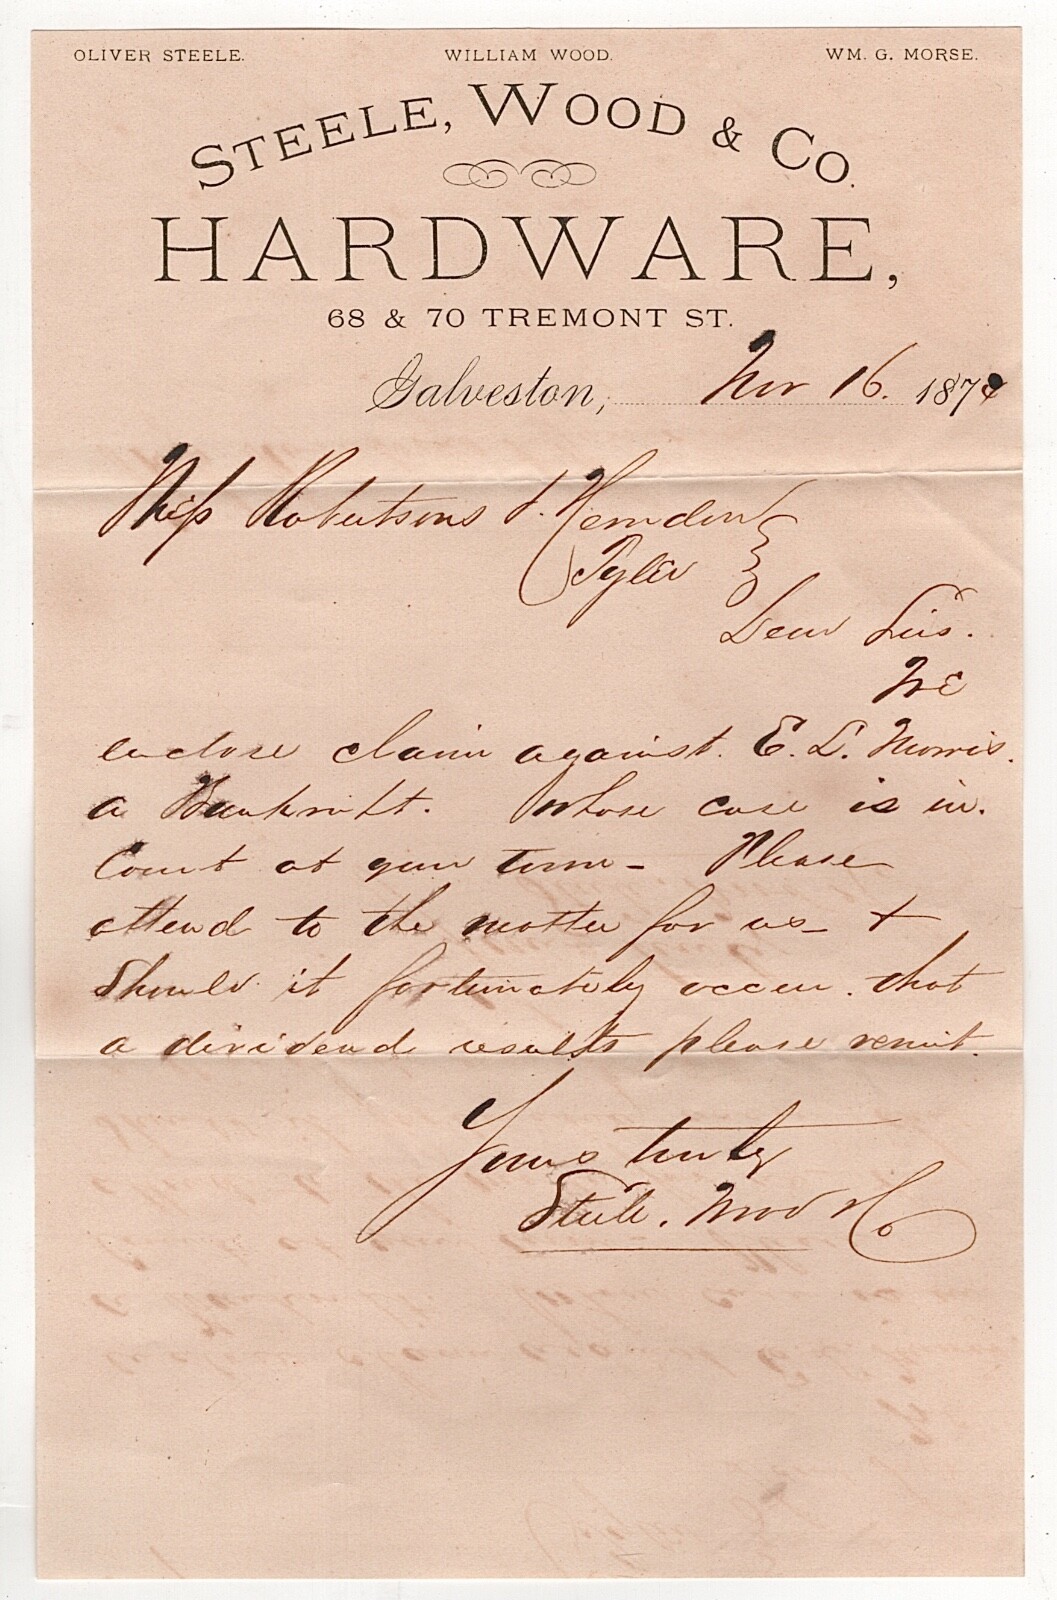 OLIVER STEELE. WILLIAM WOOD. WM. G. MORSE.
STEELE, WOOD & CO.
HARDWARE,
68 & 70 TREMONT ST.
Galveston, Nov 16. 187
Mess Robertsons & Herndon
Tyler
Dear Sirs.
We
enclose claim against. E. L. Morris.
a Bankrupt. Whose case is in.
Court at your town - Please
attend to the matter for us - &
Should it fortunately occur. that
a dividend results please remit.
Yours truly
Steele. Wood & Co